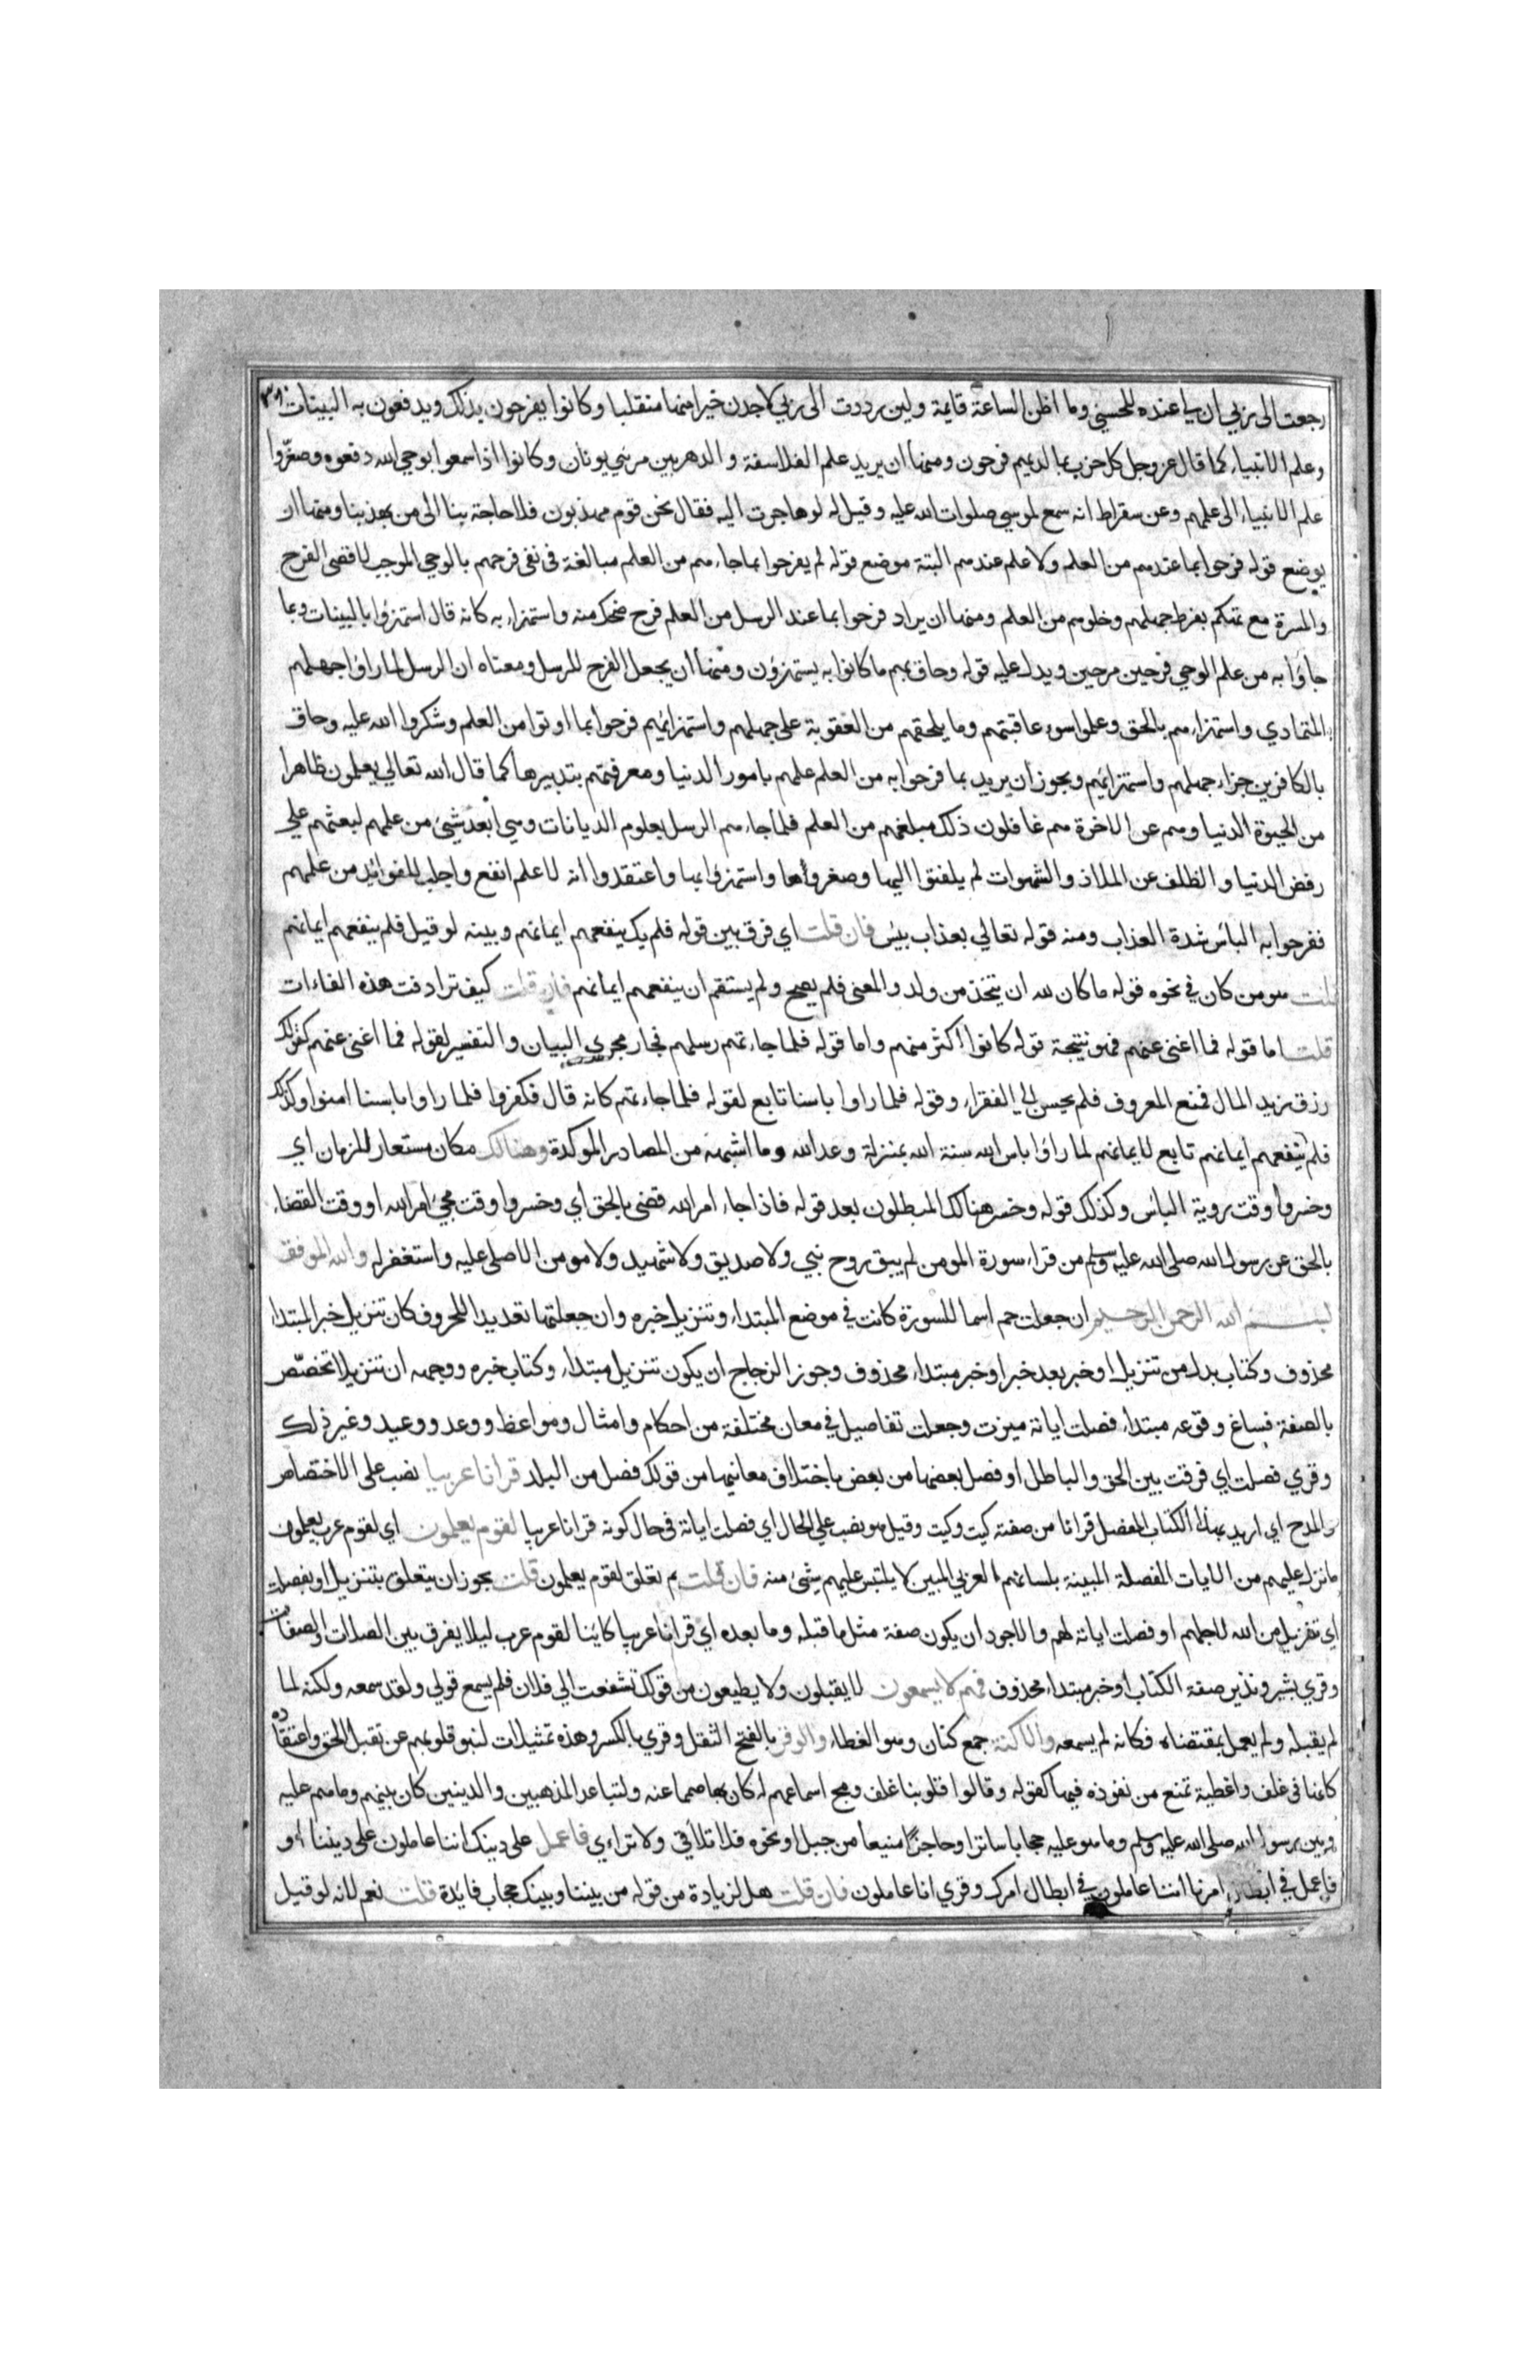 رجعت الى ربي ان لي عنده للحسنى وما اظن الساعة قايمة ولين رددت الى ربي لاجدن خيرا منها منقلبا وكانوا يفرحون بذلك ويدفعون به البينات
وعلم الانبياء كما قال عز وجل كل حزب بما لديهم فرحون ومنها ان يريد علم الفلاسفة والدهريين من بني يونان وكانوا اذا سمعوا بوحي الله دفعوه وصغروا
علم الانبياء الى علمهم وعن سقراط انه سمع لموسي صلوات الله عليه وقيل له لو هاجرت اليه فقال نحن قوم مهذبون فلا حاجة بنا الى من يهذبنا ومنها ان
يوضع قوله فرحوا بما عندهم من العلم ولا علم عندهم البتة موضع قوله لم يفرحوا بما جاءهم من العلم مبالغة في نفي فرحهم بالوحي الموجب لاقصى الفرح
والمسرة مع تهكم بفرط جهلهم وخلوهم من العلم ومنها ان يراد فرحوا بما عند الرسل من العلم فرح ضحك منه واستهزاء به كانه قال استهزؤا بالبينات وبما
جاؤا به من علم الوحي فرحين مرحين ويدل عليه قوله وحاق بهم ما كانوا به يستهزؤن ومنها ان يجعل الفرح للرسل ومعناه ان الرسل لما راؤا جهلهم
المتمادي واستهزاءهم بالحق وعلموا سوء عاقبتهم وما يلحقهم من العقوبة على جهلهم واستهزائهم فرحوا بما اوتوا من العلم وشكروا الله عليه وحاق
بالكافرين جزاء جهلهم واستهزائهم ويجوز ان يريد بما فرحوا به من العلم علمهم بامور الدنيا ومعرفتهم بتدبيرها كما قال الله تعالي يعلمون ظاهرا
من الحيوة الدنيا وهم عن الاخرة هم غافلون ذلك مبلغهم من العلم فلما جاءهم الرسل بعلوم الديانات وهي ابعد شئ من علمهم لبعثهم علي
رفض الدنيا والظلف عن الملاذ والشهوات لم يلفتوا اليها وصغروها واستهزؤا بها واعتقدوا انه لا علم انفع واجلب للفوائد من علمهم
ففرحوا به الباس شدة العذاب ومنه قوله تعالي بعذاب بيس فان قلت اي فرق بين قوله فلم يك ينفعهم ايمانهم وبينه لو قيل فلم ينفعهم ايمانهم
قلت هو من كان في نحوه قوله ما كان لله ان يتخذ من ولد والمعنى فلم يصح ولم يستقم ان ينفعهم ايمانهم فان قلت كيف ترادفت هذه الفاءات
قلت اما قوله فما اغنى عنهم فهو نتيجة قوله كانوا اكثر منهم واما قوله فلما جاءتهم رسلهم فجار مجري البيان والتفسير لقوله فما اغنى عنهم كقولك
رزق زيد المال فمنع المعروف فلم يحسن الي الفقراء وقوله فلما راوا باسنا تابع لقوله فلما جاءتهم كانه قال فكفروا فلما راوا باسنا امنوا وكذلك
فلم ينفعهم ايمانهم تابع لايمانهم لما راؤا باس الله سنة الله بمنزلة وعد الله وما اشبهه من المصادر الموكدة وهنالك مكان مستعار للزمان اي
وخسروا وقت روية الباس وكذلك قوله وخسر هنالك المبطلون بعد قوله فاذا جاء امر الله قضى بالحق اي وخسروا وقت مجئ امر الله او وقت القضاء
بالحق عن رسول الله صلى الله عليه وسلم من قراء سورة المومن لم يبق روح نبي ولا صديق ولا شهيد ولا مومن الا صلى عليه واستغفر له والله الموفق
بسم الله الرحمن الرحيم ان جعلت حم اسما للسورة كانت في موضع المبتداء وتنزيل خبره وان جعلتها تعديدا للحروف كان تنزيل خبر المبتداء
محذوف وكتاب بدل من تنزيل او خبر بعد خبر او خبر مبتداء محذوف وجوز الزجاج ان يكون تنزيل مبتداء وكتاب خبره ووجهه ان تنزيلا تخصّص
بالصفة فساغ وقوعه مبتداء فصلت اياته ميزت وجعلت تفاصيل في معان مختلفة من احكام وامثال ومواعظ ووعد ووعيد وغير ذلك
وقري فصلت اي فرقت بين الحق والباطل او فصل بعضها من بعض باختلاف معانيها من قولك فصل من البلد قرانا عربيا نصب على الاختصاص
والمدح اي اريد بهذا الكتاب المفصل قرانا من صفته كيت وكيت وقيل هو نصب علي الحال اي فصلت اياته في حال كونه قرانا عربيا لقوم يعلمون اي لقوم عرب يعلمون
ما نزل عليهم من الايات المفصلة المبينة بلسانهم العربي المبين لا يلتبس عليهم شئ منه فان قلت بم تعلق لقوم يعلمون قلت يجوز ان يتعلق بتنزيل او بفصلت
اي تنزيل من الله لاجلهم او فصلت اياته لهم والاجود ان يكون صفة مثل ما قبله وما بعده اي قرانا عربيا كائنا لقوم عرب ليلا يفرق بين الصلات والصفات
وقري بشير ونذير صفة الكتاب او خبر مبتداء محذوف فهم لا يسمعون لا يقبلون ولا يطيعون من قولك تشفعت الي فلان فلم يسمع قولي ولقد سمعه ولكنه لما
لم يقبله ولم يعمل بمقتضاه فكانه لم يسمعه والاكنة جمع كنان وهو الغطاء والوقر بالفتح الثقل وقري بالكسر وهذه تمثيلات لنبو قلوبهم عن تقبل الحق واعتقاده
كانها في غلف واغطية تمنع من نفوذه فيها كقوله وقالوا قلوبنا غلف ومج اسماعهم له كان بها صمما عنه ولتباعد المذهبين والدينين كان بينهم وما هم عليه
وبين رسول الله صلى الله عليه وسلم وما هو عليه حجابا ساترا وحاجزا منيعا من جبل او نحوه فلا تلاقي ولا تراءي فاعمل على دينك اننا عاملون على ديننا او
فاعمل في ابطال امرنا اننا عاملون في ابطال امرك وقري انا عاملون فان قلت هل لزيادة من قوله من بيننا وبينك حجاب فايدة قلت نعم لانه لو قيل